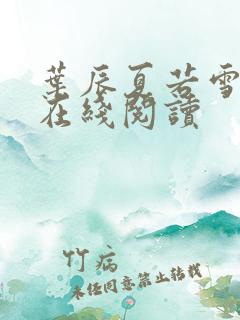 葉辰夏若雪
在綫閱讀
竹病
未經同意禁止轉載